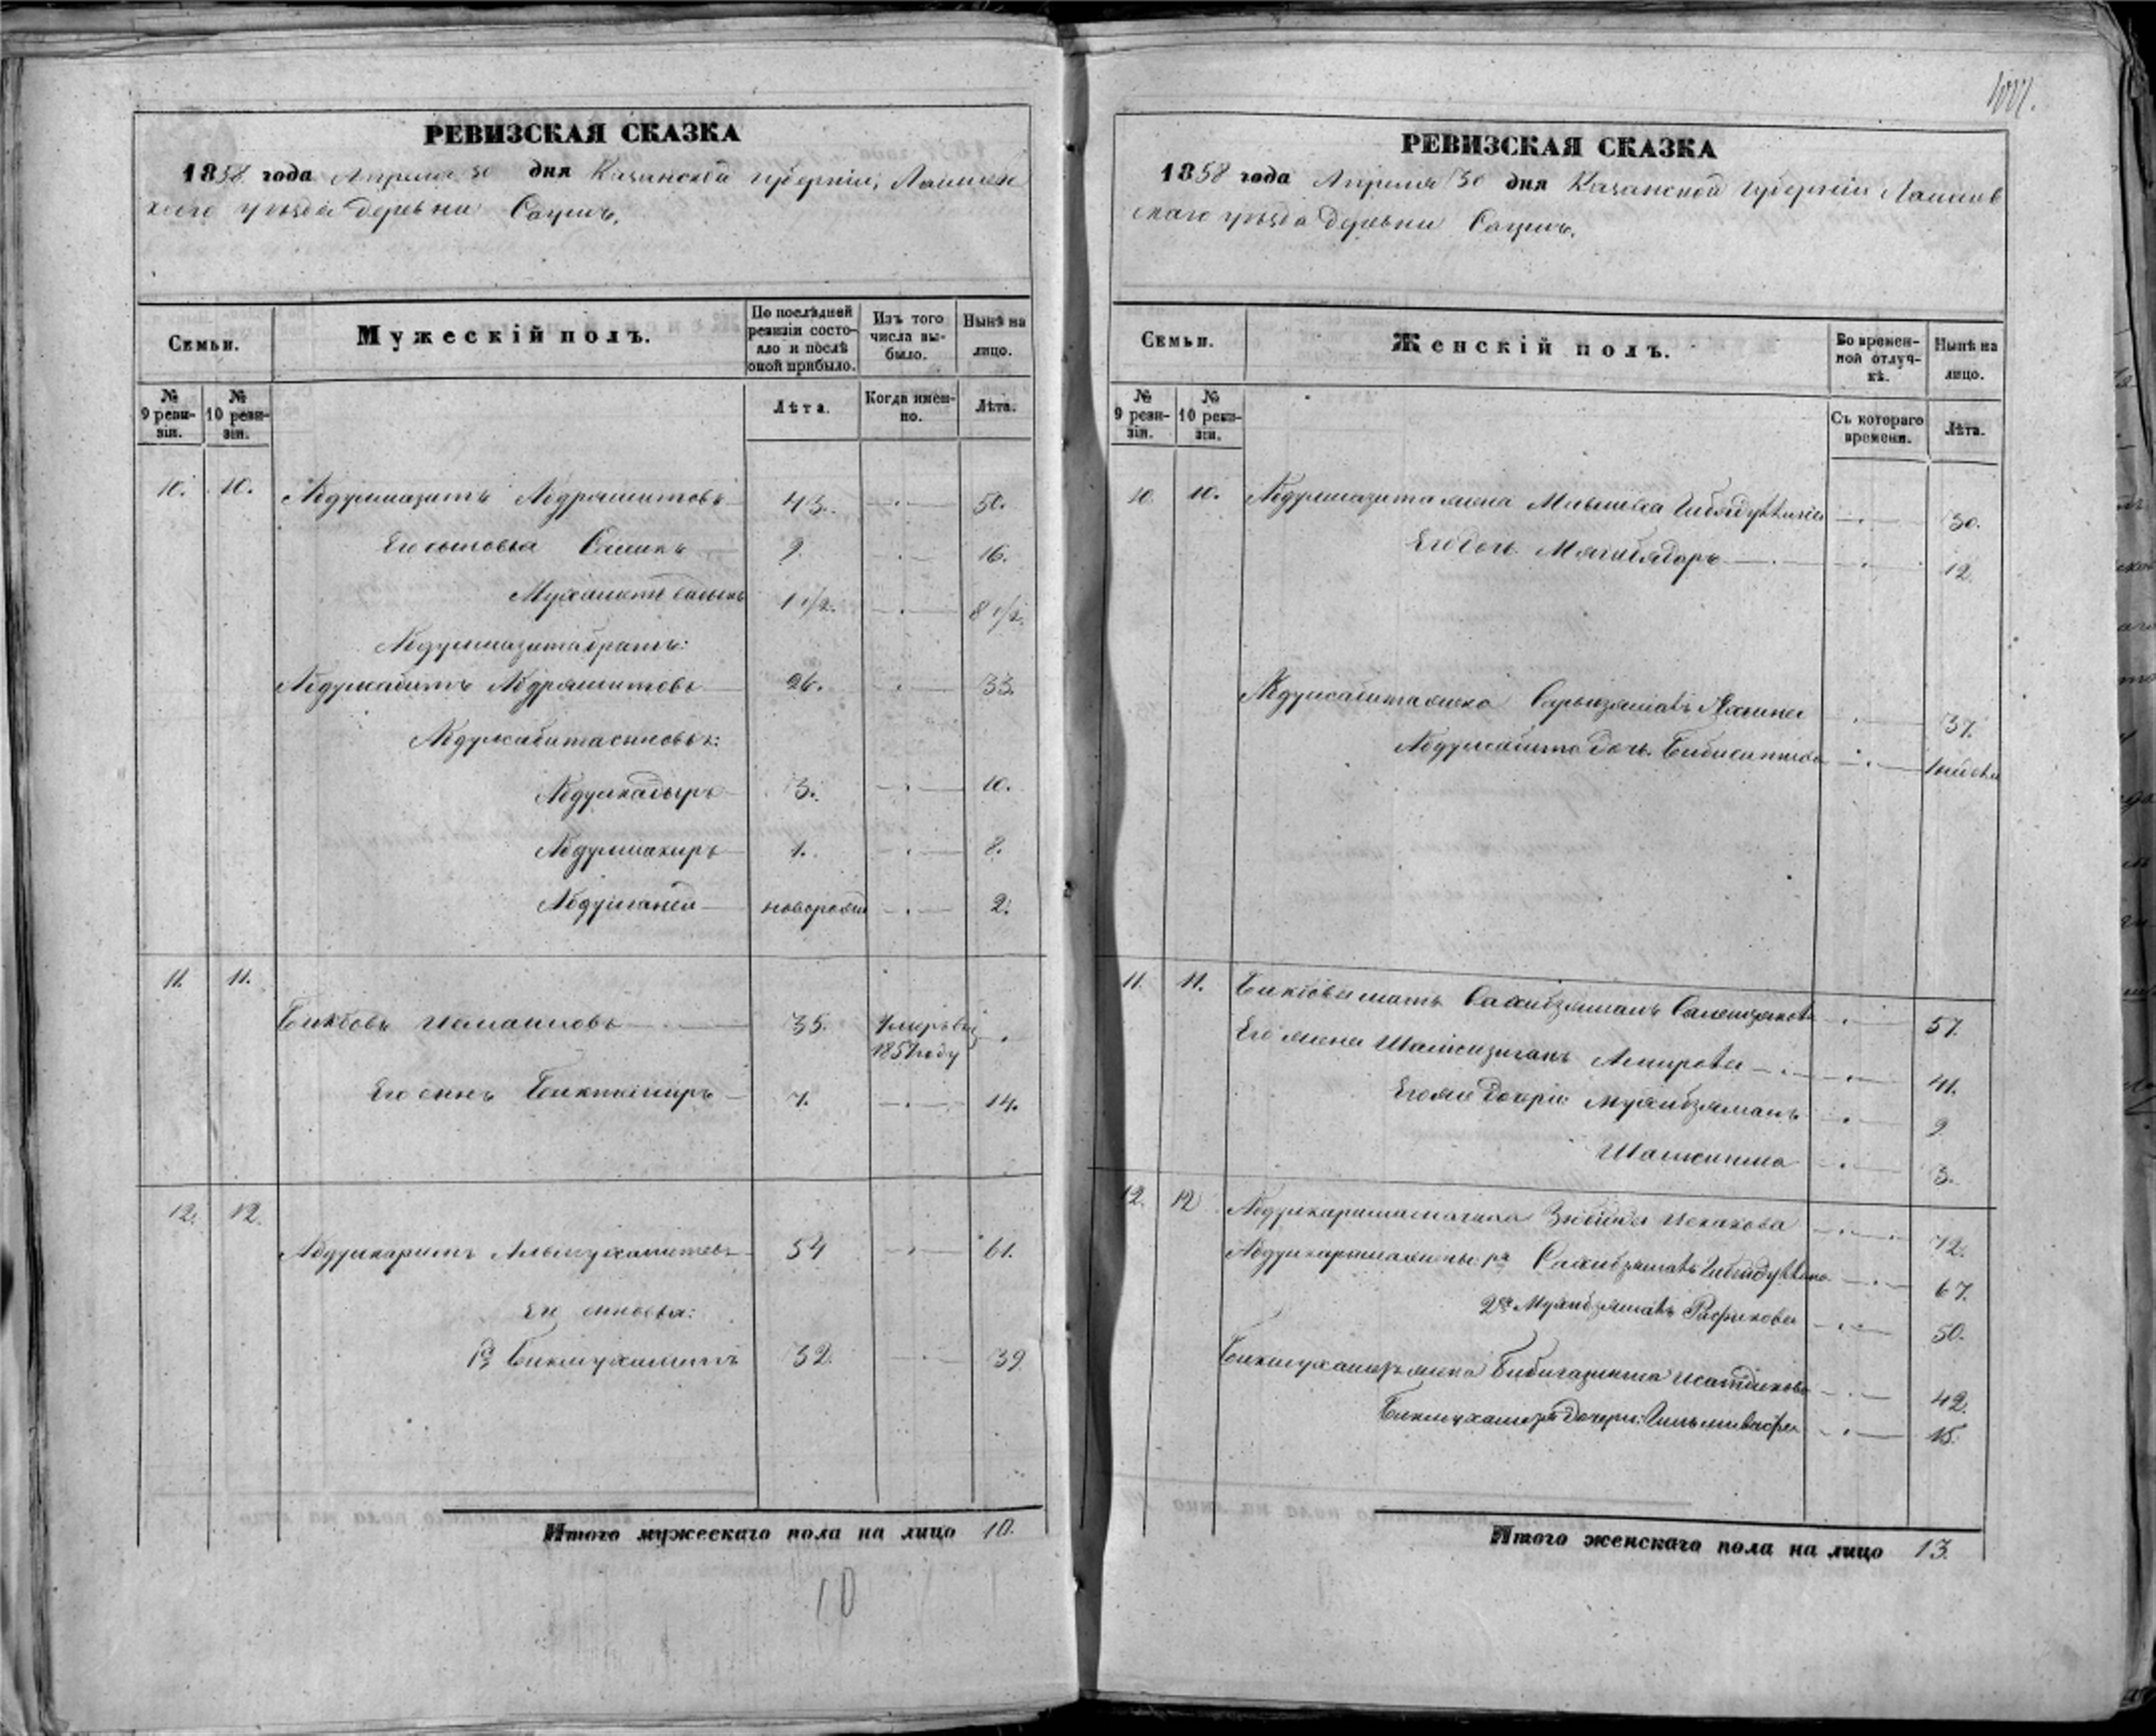 РЕВИЗСКАЯ СКАЗКА
1858 года Апреля 30 дня Казанской губернии, Лаишев
скаго уѣзда деревни
Семьи.
Мужескій полъ.
По послѣдней ревизіи состояло и послѣ оной прибыло.
Изъ того числа выбыло.
Нынѣ на лицо.
№ 9 ревизіи.
№ 10 ревизіи.
Лѣта.
Когда именно.
Лѣта.
10. 10. Абдулмазитъ Абдряшитовъ 43. 50.
Его сыновья Салихъ 9. 16.
Мухаметъ Садыкъ 1 1/2. 8 1/2.
Абдулмазита братъ:
Абдулсабитъ Абдряшитовъ 26. 33.
Абдулсабита сыновья:
Абдулкадыръ 3. 10.
Абдулшакиръ 1. 8.
Абдулганей новорожд 2.
11. 11.
Бикбовъ Исмаиловъ 35. Умеръ въ 1857 году
Его сынъ Биктимиръ 7. 14.
12. 12.
Абдулкаримъ Альмухаметевъ 54 61.
Его сыновья:
1й Бикмухаметъ 32. 39
Итого мужескаго пола на лицо 10.
10
РЕВИЗСКАЯ СКАЗКА
1858 года Апреля 30 дня Казанской губерніи Лаишев
скаго уѣзда деревни
Семьи.
Женскій полъ.
Во временной отлучкѣ.
Нынѣ на лицо.
№ 9 ревизіи.
№ 10 ревизіи.
Съ котораго времени.
Лѣта.
10. 10. Абдулмазита жена 30.
Его дочь 12.
Абдулсабита жена 37.
Абдулсабита дочь 1 недѣли
11. 11. Бикбова мать Сахибзямалъ 57.
Его жена Амирова 41.
Его же дочери: Мухибзямалъ 9
3.
12. 12 Абдулкарима мачиха Зюбида Искакова 72.
Абдулкарима жены: 1я Сахибзямалъ 67.
2я Мухибзямалъ Рафикова 50.
Бикмухамета жена 42.
Бикмухамета дочери: 15.
Итого женскаго пола на лицо 13.